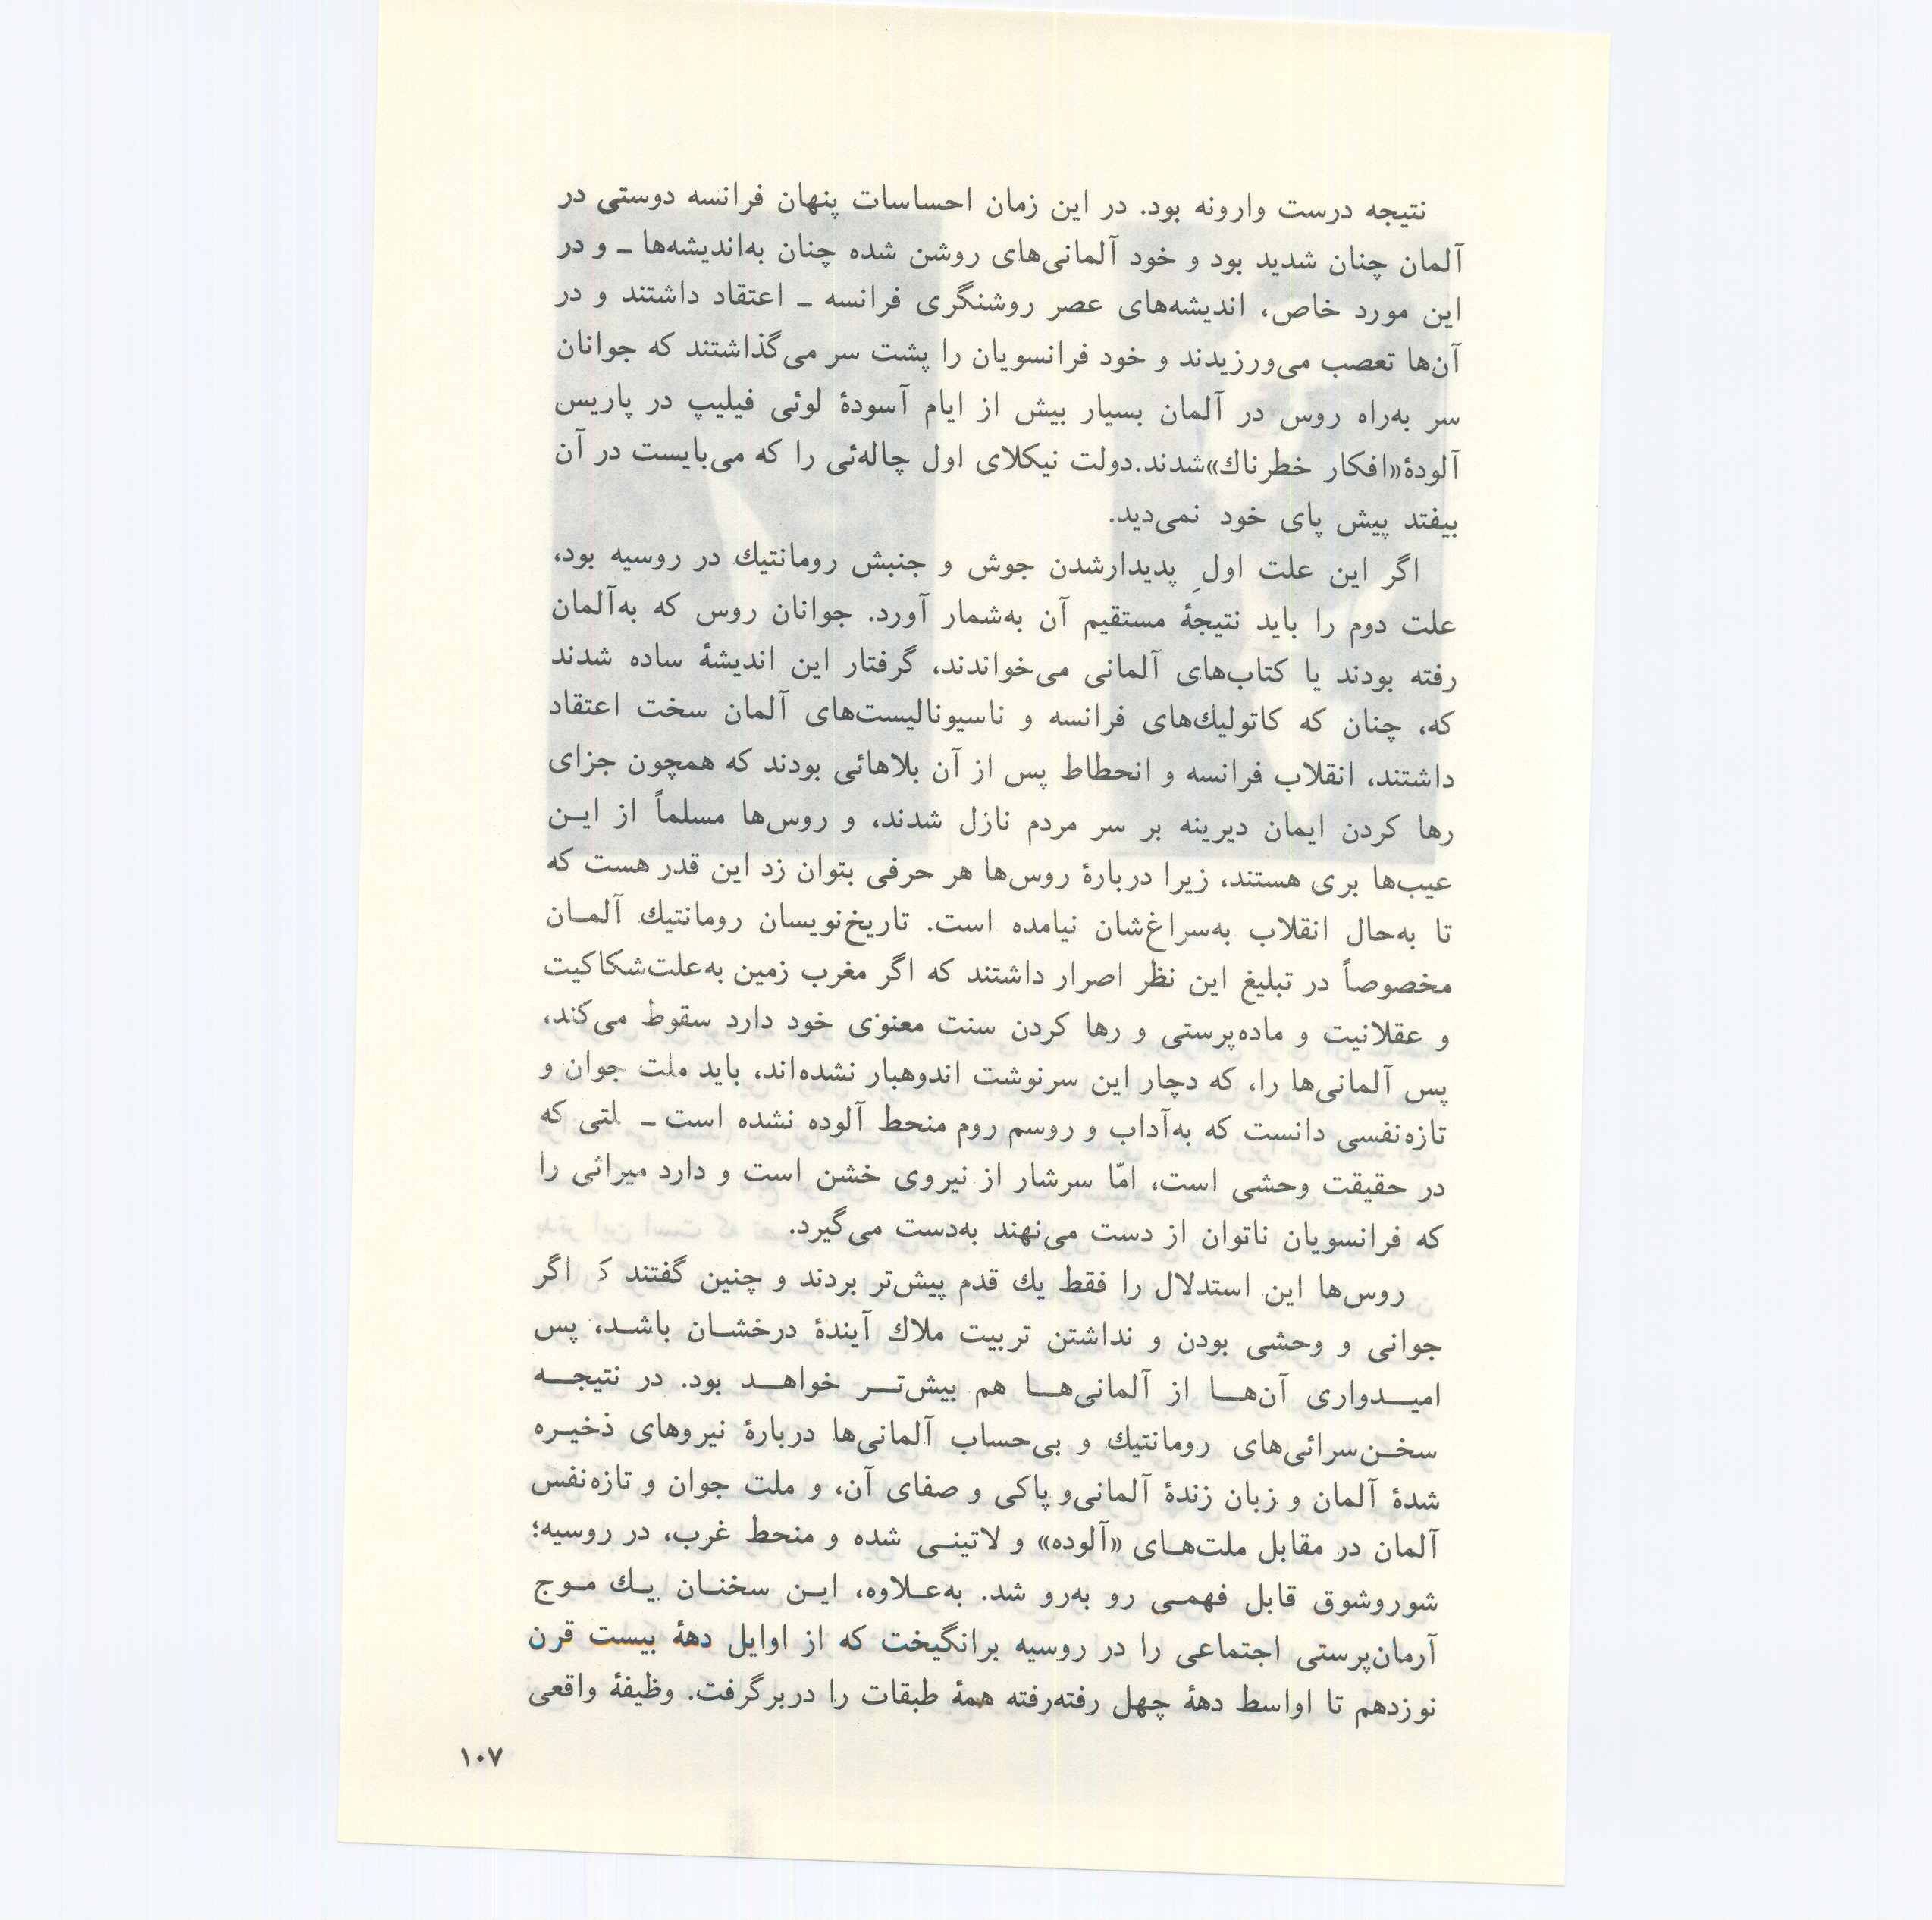 نتیجه درست وارونه بود. در این زمان احساسات پنهان فرانسه دوستی در
آلمان چنان شدید بود و خود آلمانی‌های روشن شده چنان به‌اندیشه‌ها ـ و در
این مورد خاص، اندیشه‌های عصر روشنگری فرانسه ـ اعتقاد داشتند و در
آن‌ها تعصب می‌ورزیدند و خود فرانسویان را پشت سر می‌گذاشتند که جوانان
سر به‌راه روس در آلمان بسیار بیش از ایام آسودهٔ لوئی فیلیپ در پاریس
آلودهٔ«افکار خطرناك»شدند.دولت نیکلای اول چاله‌ئی را که می‌بایست در آن
بیفتد پیش پای خود نمی‌دید.
اگر این علت اولِ پدیدارشدن جوش و جنبش رومانتیك در روسیه بود،
علت دوم را باید نتیجهٔ مستقیم آن به‌شمار آورد. جوانان روس که به‌آلمان
رفته بودند یا کتاب‌های آلمانی می‌خواندند، گرفتار این اندیشهٔ ساده شدند
که، چنان که کاتولیك‌های فرانسه و ناسیونالیست‌های آلمان سخت اعتقاد
داشتند، انقلاب فرانسه و انحطاط پس از آن بلاهائی بودند که همچون جزای
رها کردن ایمان دیرینه بر سر مردم نازل شدند، و روس‌ها مسلماً از ایـن
عیب‌ها بری هستند، زیرا دربارهٔ روس‌ها هر حرفی بتوان زد این قدر هست که
تا به‌حال انقلاب به‌سراغ‌شان نیامده است. تاریخ‌نویسان رومانتیك آلمـان
مخصوصاً در تبلیغ این نظر اصرار داشتند که اگر مغرب زمین به‌علت‌شکاکیت
و عقلانیت و ماده‌پرستی و رها کردن سنت معنوی خود دارد سقوط می‌کند،
پس آلمانی‌ها را، که دچار این سرنوشت اندوهبار نشده‌اند، باید ملت جوان و
تازه‌نفسی دانست که به‌آداب و روسم روم منحط آلوده نشده است ـ لتی که
در حقیقت وحشی است، امّا سرشار از نیروی خشن است و دارد میراثی را
که فرانسویان ناتوان از دست می‌نهند به‌دست می‌گیرد.
روس‌ها این استدلال را فقط یك قدم پیش‌تر بردند و چنین گفتند ک اگر
جوانی و وحشی بودن و نداشتن تربیت ملاك آیندهٔ درخشـان باشـد، پس
امیـــدواری آن‌هـــا از آلمانی‌هـــا هم بیش‌تـــر خواهـــد بود. در نتیجـــه
سخـن‌سرائی‌های رومانتیك و بی‌حساب آلمانی‌ها دربارهٔ نیروهای ذخیـره
شدهٔ آلمان و زبان زندهٔ آلمانی‌و پاکی و صفای آن، و ملت جوان و تازه‌نفس
آلمان در مقابل ملت‌هـای «آلوده» و لاتینـی شده و منحط غرب، در روسیه؛
شوروشوق قابل فهمـی رو به‌رو شد. به‌عـلاوه، ایـن سخنـان یـك مـوج
آرمان‌پرستی اجتماعی را در روسیه برانگیخت که از اوایل دههٔ بیست قرن
نوزدهم تا اواسط دههٔ چهل رفته‌رفته همهٔ طبقات را دربرگرفت. وظیفهٔ واقعی
۱۰۷